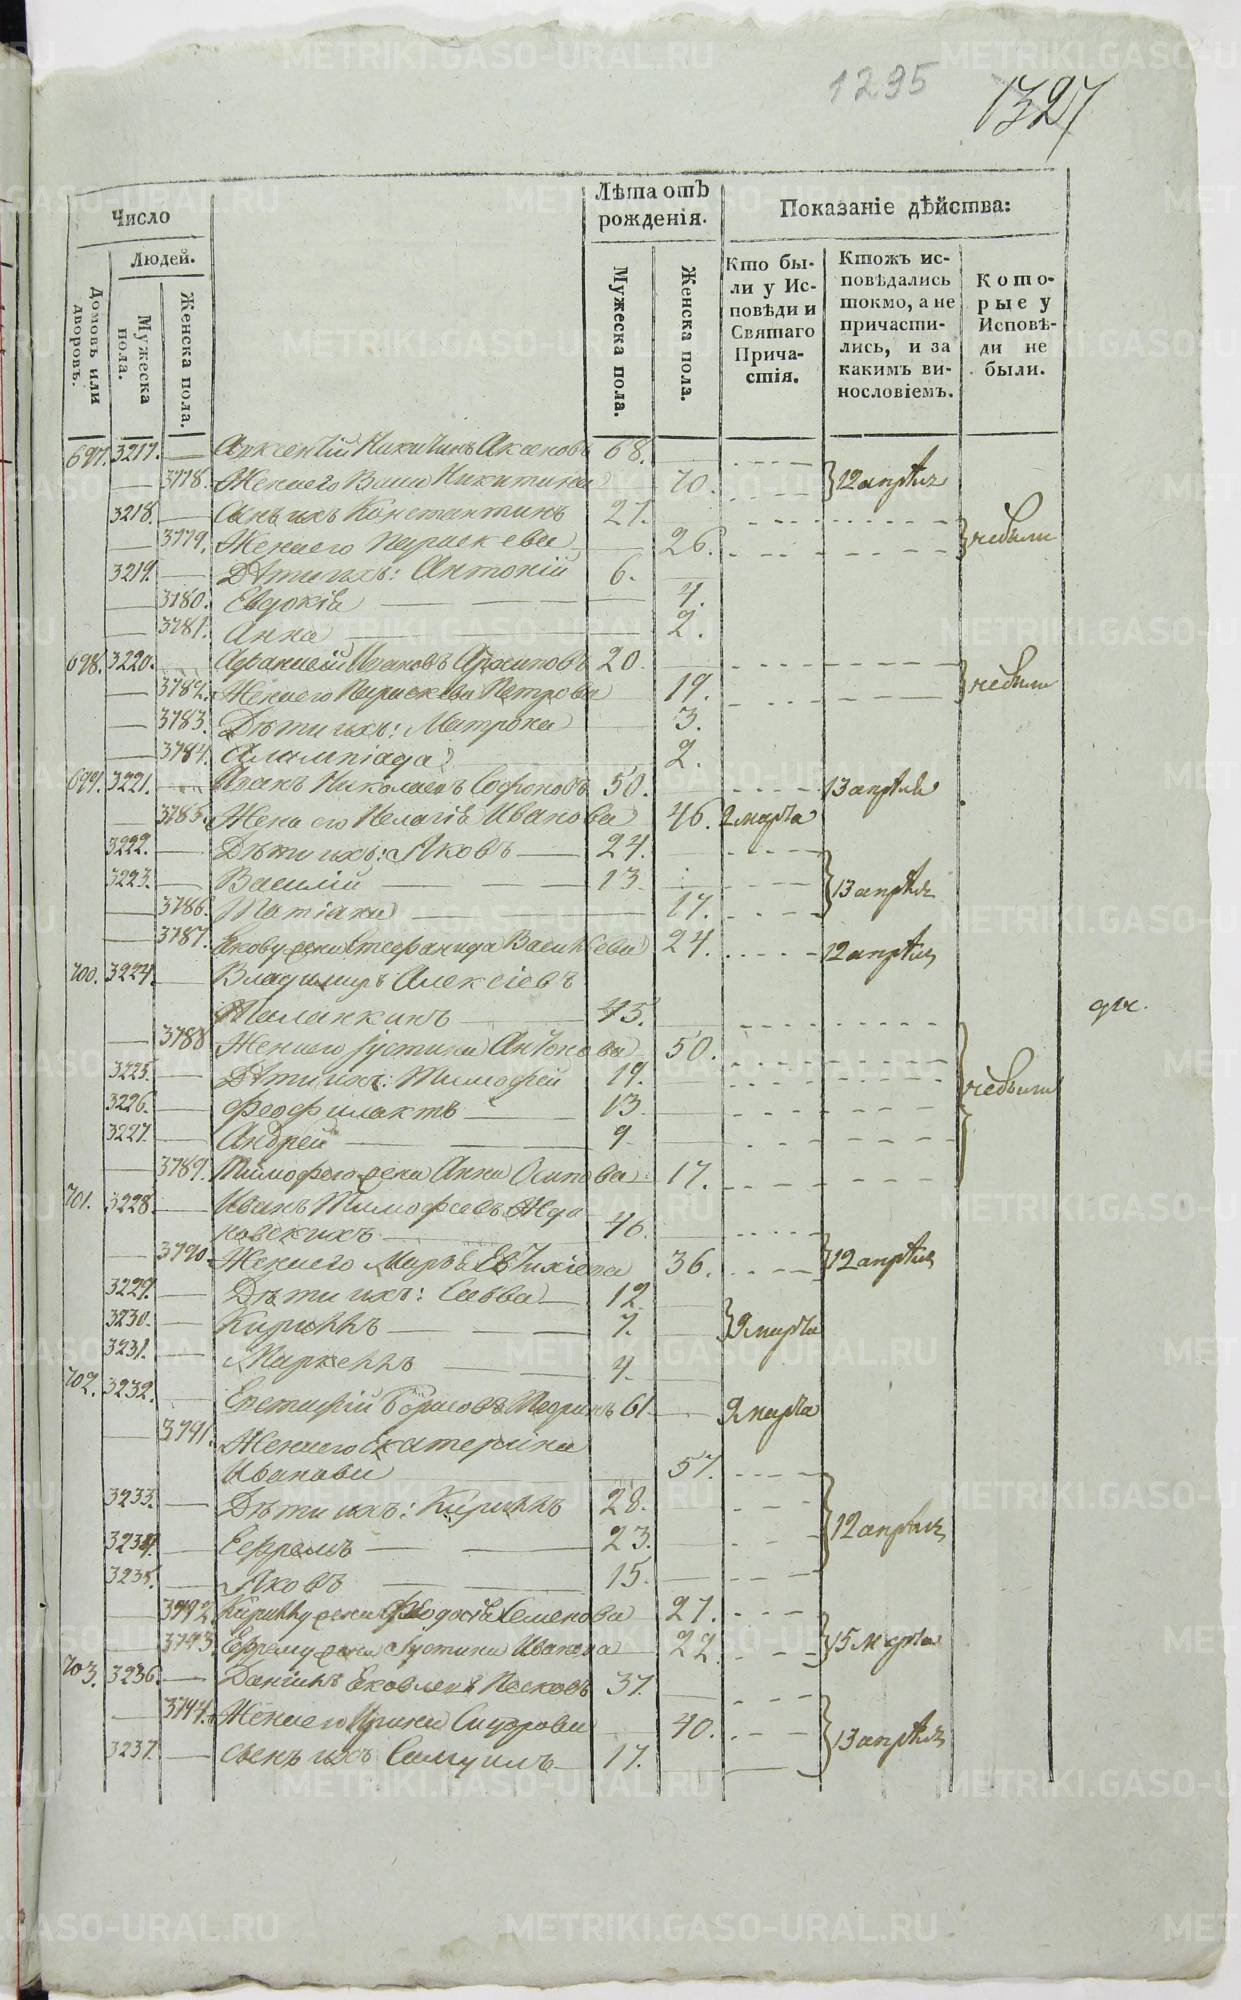 1295
1327
Число
Лѣта отъ рожденія.
Показаніе дѣйства:
Людей.
Домовъ или дворовъ.
Мужеска пола.
Женска пола.
Мужеска пола.
Женска пола.
Кто были у Исповѣди и Святаго Причастія.
Ктожъ исповѣдались токмо, а не причастились, и за какимъ винословіемъ.
Которые у Исповѣди не были.
697. 3217. Арксентій Никитинъ Аксеновъ 68.
3778. Жена его Васа Никитина 70. 12 апрѣля
3218. Сынъ ихъ Константинъ 27.
3779. Жена его Параскева 26. небыли
3219. Дѣти ихъ: Антоній 6.
3780. Евдокія 4.
3781. Анна 2.
698. 3220. Афанасій Ивановъ Архиповъ 20.
3782. Жена его Параскева Петрова 19. небыли
3783. Дѣти ихъ: Матрона 3.
3784. Алимпіада 2.
699. 3221. Иванъ Николаевъ Софоновъ 50. 13 апрѣля
3785. Жена его Пелагія Иванова 46. 2 марта
3222. Дѣти ихъ: Яковъ 24.
3223. Василій 13. 13 апрѣля
3786. Татіана 17.
3787. Якову жена Стефанида Васильева 24. 12 апрѣля
700. 3224. Владимиръ Алексіевъ
Таланкинъ 45.
3788 Жена его Іустина Антонова 50.
3225. Дѣти ихъ: Тимофей 19. небыли
3226. Феофилактъ 13.
3227. Андрей 9.
3789. Тимофею жена Анна Осипова 17.
701. 3228. Иванъ Тимофеевъ Жда
новскихъ 46.
3790. Жена его Марья Евтихіева 36. 12 апрѣля
3229. Дѣти ихъ: Савва 12
3230. Кириллъ 7. 9 марта
3231. Маркеллъ 4.
702. 3232. Епетифій Борисовъ Медринъ 61. 9 марта
3791. Жена его Екатерина
Иванова 57.
3233. Дѣти ихъ: Кириллъ 28.
3234. Ефремъ 23. 12 апрѣля
3235. Яковъ 15.
3792. Кириллу жена Феодосія Семенова 27.
3793. Ефрему жена Іустина Иванова 22. 15 марта
703. 3236. Даніилъ Яковлевъ Песковъ 37.
3794. Жена его Ирина Сидорова 40. 13 апрѣля
3237. Сынъ ихъ Самуилъ 17.
METRIKI.GASO-URAL.RU